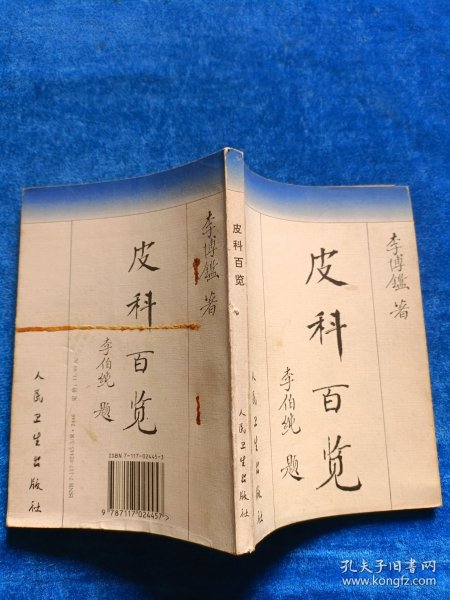 李博鑑 著
皮科百览
李伯纯 题
人民卫生出版社
皮科百览
人民卫生出版社
李博鑑 著
皮科百览
李伯纯 题
人民卫生出版社
ISBN 7-117-02445-3
9 787117 024457 >
孔夫子旧书网
www.kongfz.com